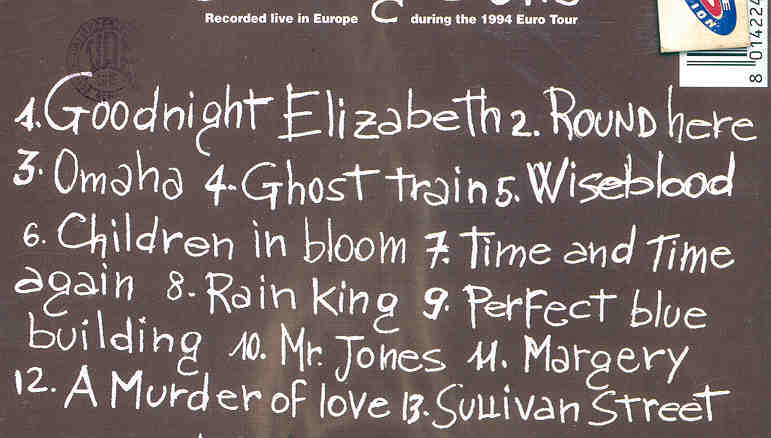 Recorded live in Europe during the 1994 Euro Tour
1. Goodnight Elizabeth 2. ROUND here
3. Omaha 4. Ghost train 5. Wiseblood
6. Children in bloom 7. Time and Time
again 8. Rain king 9. Perfect blue
building 10. Mr. Jones 11. Margery
12. A Murder of love 13. Sullivan Street
8 014224